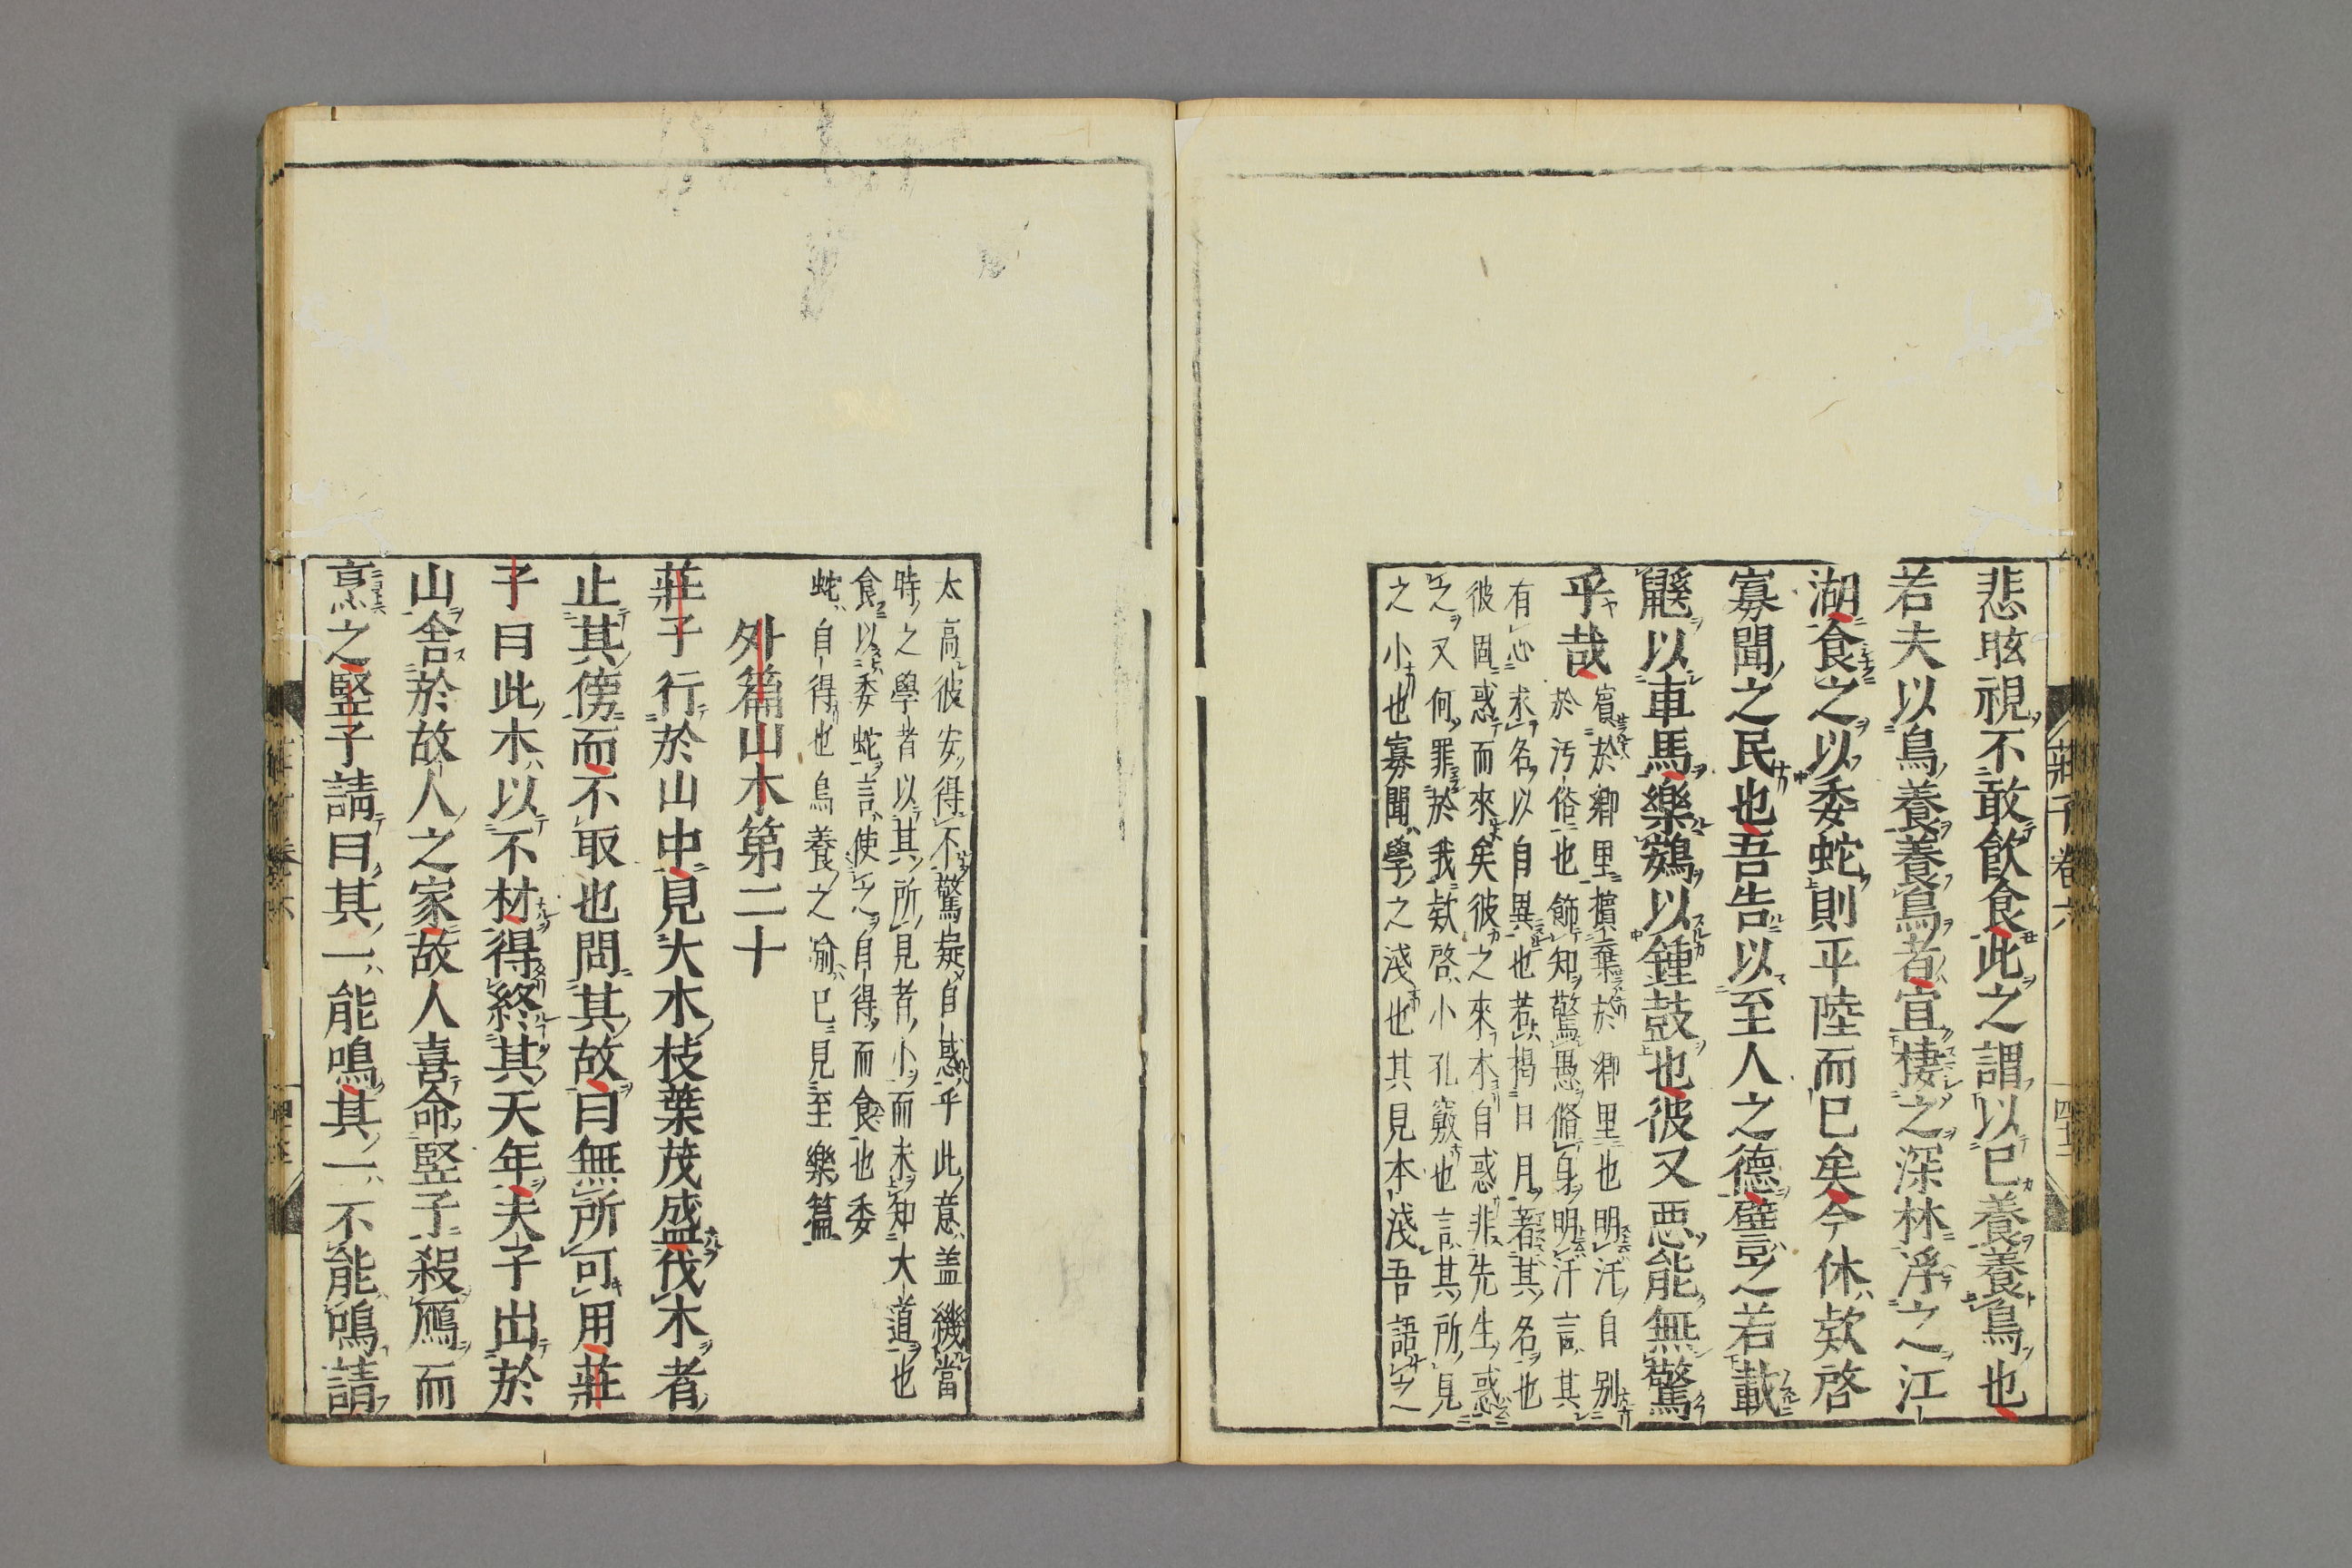 悲眩視不敢飲食此之謂以己養養鳥也
若夫以鳥養養鳥者宜棲之深林浮之江
湖食之以委蛇則平陸而已矣今休欵啓
寡聞之民也吾告以至人之德譬之若載
鼷以車馬樂鷃以鍾鼓也彼又惡能無驚
乎哉
賓於鄉里擯棄於鄉里也明汙自別
於汚俗也飾知驚愚脩身明汙言其
有心求名以自異也若揭日月著其名也
彼固惑而來矣彼之來本自惑非先生惑
之又何罪於我欵啓小孔竅也言其所見
之小也寡聞學之淺也其見本淺吾語之
莊子卷六
太高彼安得不驚疑自惑乎此意盖譏當
時之學者以其所見者小而未知大道也
食以委蛇言使之自得而食也委
蛇自得也鳥養之喻已見至樂篇
外篇山木第二十
莊子行於山中見大木枝葉茂盛伐木者
止其傍而不取也問其故曰無所可用莊
子曰此木以不材得終其天年夫子出於
山舍於故人之家故人喜命豎子殺鴈而
烹之豎子請曰其一能鳴其一不能鳴請